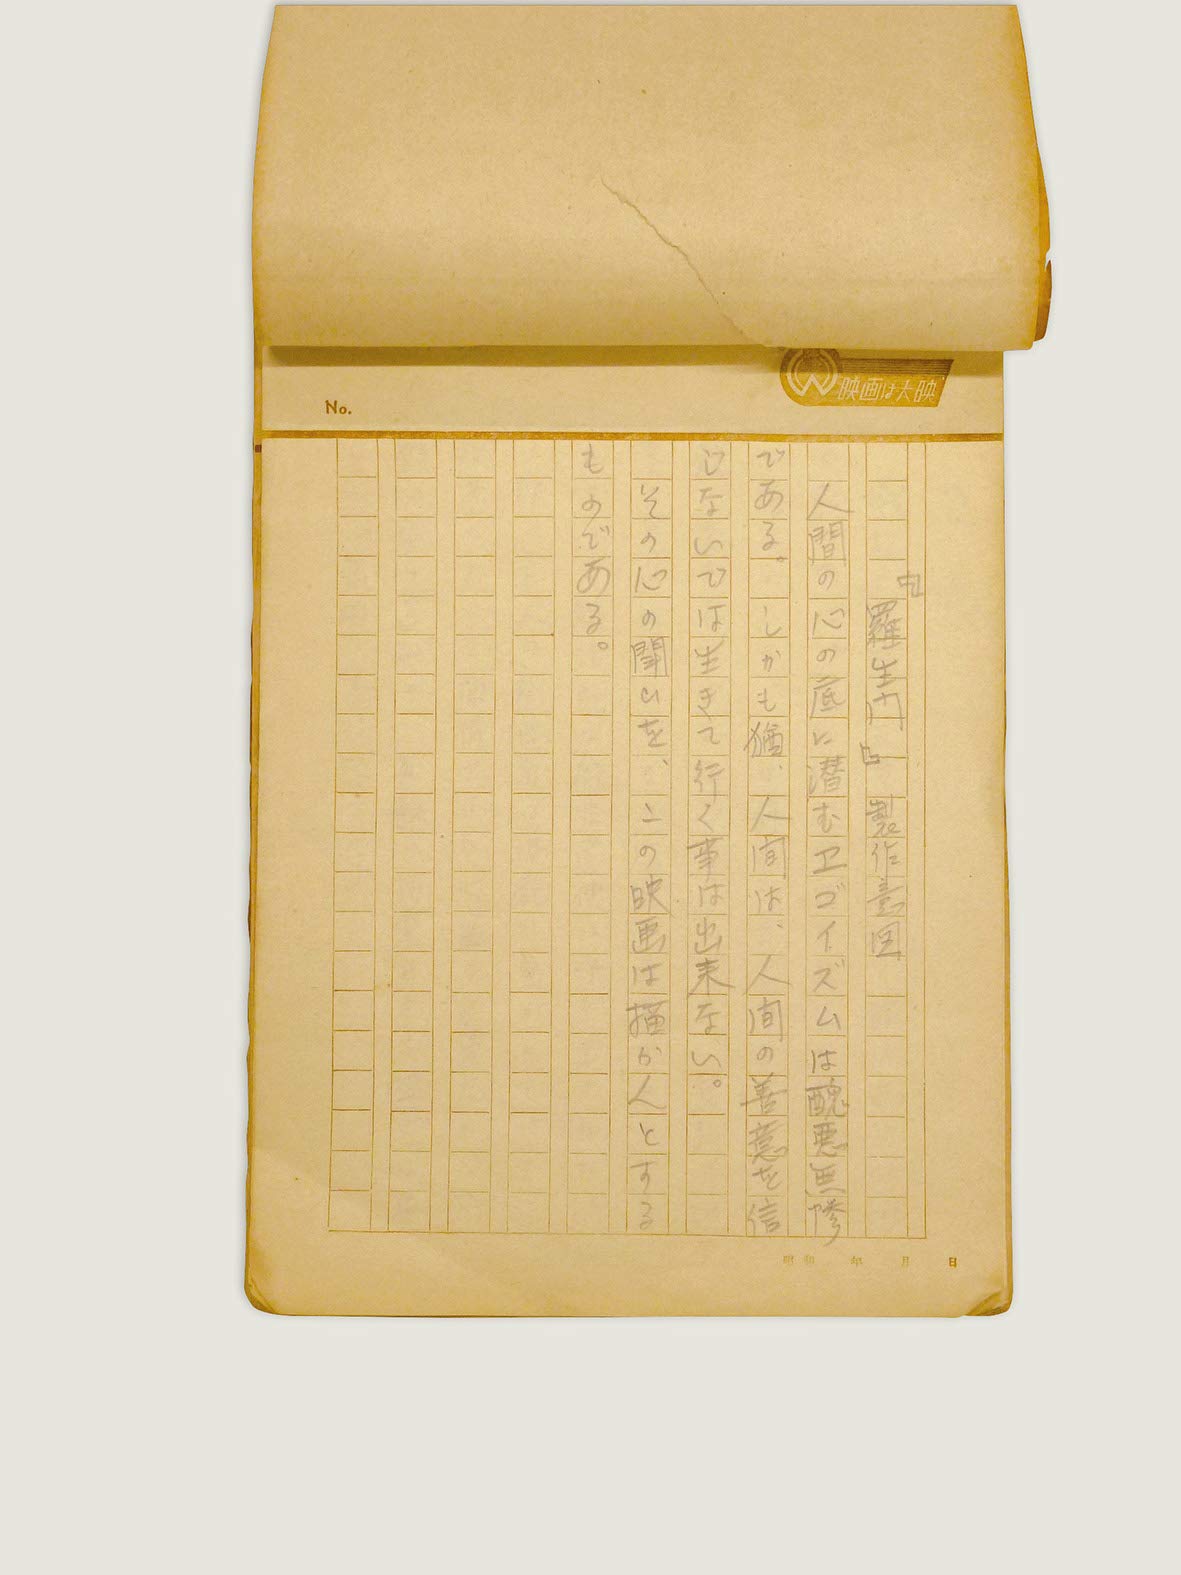 映画は大映
No.
『羅生門』 製作意図
人間の心の底に潜むエゴイズムは醜悪無惨
である。しかも猶、人間は、人間の善意を信
じないでは生きて行く事は出来ない。
その心の闘いを、この映画は描かんとする
ものである。
昭和 年 月 日